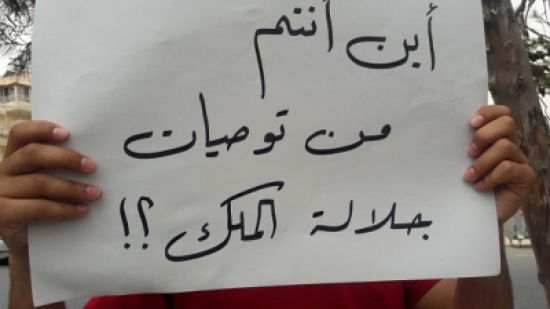 أين أنتم
من توصيات
جلالة الملك ؟!!